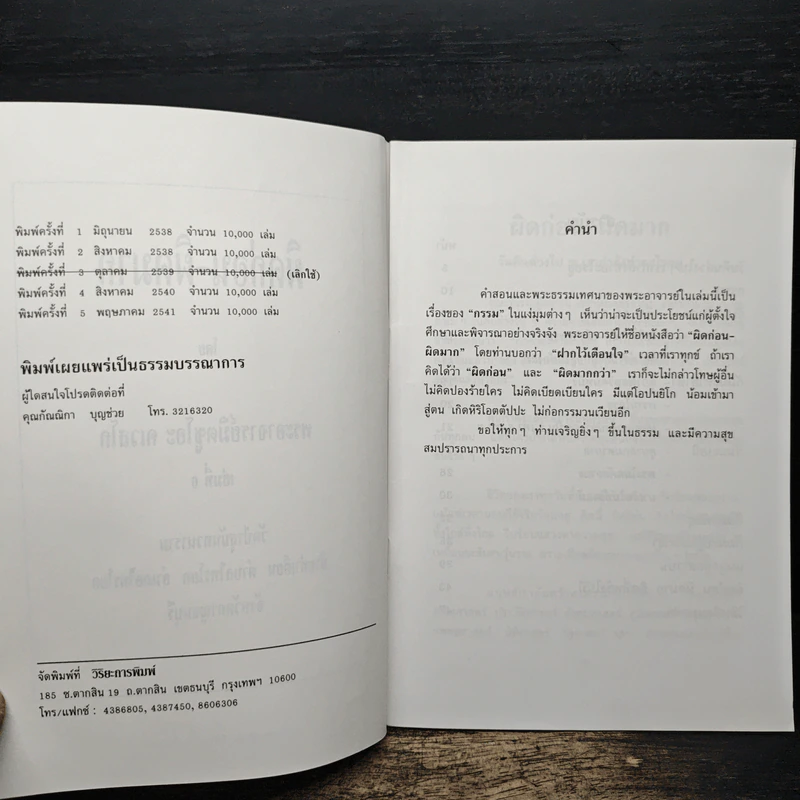 พิมพ์ครั้งที่ 1 มิถุนายน 2538 จำนวน 10,000 เล่ม
พิมพ์ครั้งที่ 2 สิงหาคม 2538 จำนวน 10,000 เล่ม
พิมพ์ครั้งที่ 3 ตุลาคม 2539 จำนวน 10,000 เล่ม (เลิกใช้)
พิมพ์ครั้งที่ 4 สิงหาคม 2540 จำนวน 10,000 เล่ม
พิมพ์ครั้งที่ 5 พฤษภาคม 2541 จำนวน 10,000 เล่ม
พิมพ์เผยแพร่เป็นธรรมบรรณาการ
ผู้ใดสนใจโปรดติดต่อที่
คุณกัณณิกา บุญช่วย โทร. 3216320
จัดพิมพ์ที่ วิริยะการพิมพ์
185 ซ.ตากสิน 19 ถ.ตากสิน เขตธนบุรี กรุงเทพฯ 10600
โทร/แฟกซ์ : 4386805, 4387450, 8606306
คำนำ
คำสอนและพระธรรมเทศนาของพระอาจารย์ในเล่มนี้เป็น
เรื่องของ "กรรม" ในแง่มุมต่างๆ เห็นว่าน่าจะเป็นประโยชน์แก่ผู้ตั้งใจ
ศึกษาและพิจารณาอย่างจริงจัง พระอาจารย์ให้ชื่อหนังสือว่า "ผิดก่อน-
ผิดมาก" โดยท่านบอกว่า "ฝากไว้เตือนใจ" เวลาที่เราทุกข์ ถ้าเรา
คิดได้ว่า "ผิดก่อน" และ "ผิดมากกว่า" เราก็จะไม่กล่าวโทษผู้อื่น
ไม่คิดปองร้ายใคร ไม่คิดเบียดเบียนใคร มีแต่โอปนยิโก น้อมเข้ามา
สู่ตน เกิดหิริโอตตัปปะ ไม่ก่อกรรมวนเวียนอีก
ขอให้ทุกๆ ท่านเจริญยิ่งๆ ขึ้นในธรรม และมีความสุข
สมปรารถนาทุกประการ